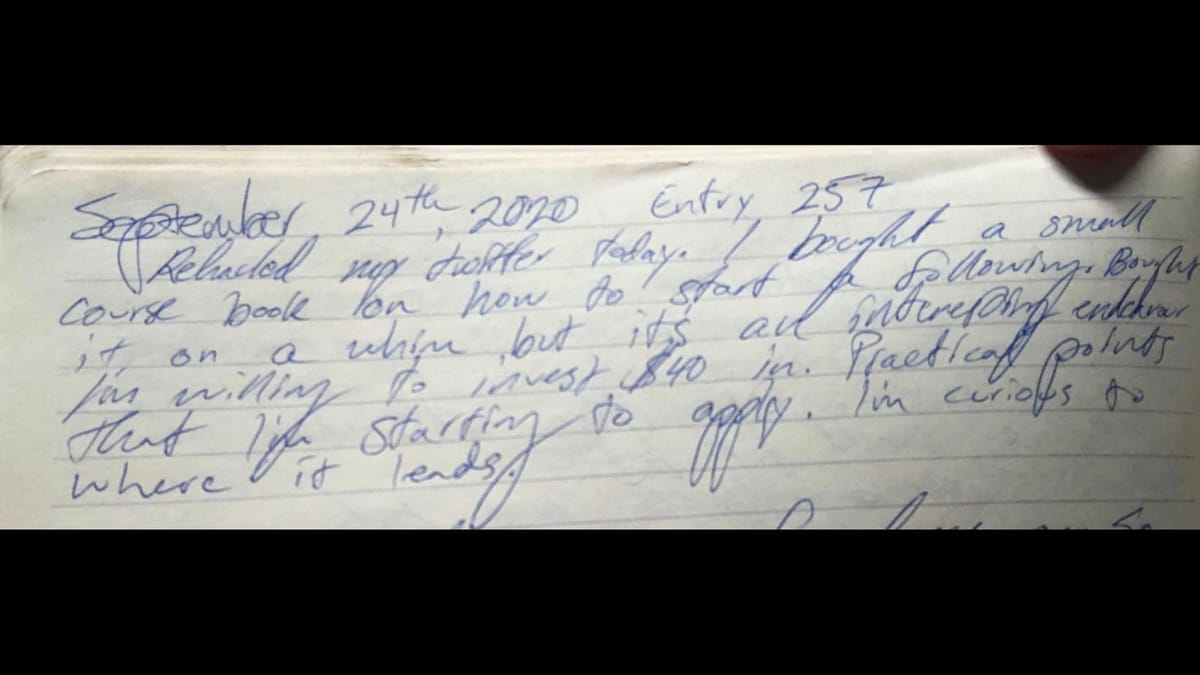 September 24th, 2020 Entry 257
my twitter today. I bought a small
course book on how to start a following. Bought
it on a whim, but it's an interesting endeavor
I'm willing to invest $40 in. Practical points
that I'm starting to apply. I'm curious to
where it leads.